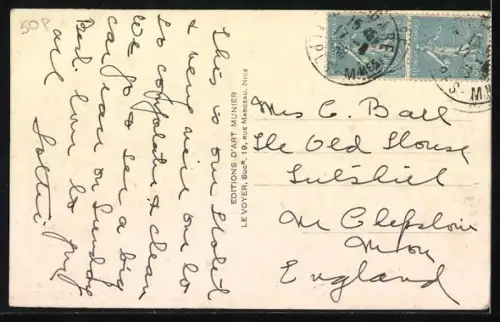 50P
This is our Hotel
& very nice one to
so comfortable & clean
We go to see a big
car race on Sunday
Best love to
all
Lottie
EDITIONS D'ART MUNIER
LE VOYER, Sucr, 19, RUE MARCEAU, NICE
GARE
Mrs C. Ball
The Old House
Nr Chepstow
Mon
England